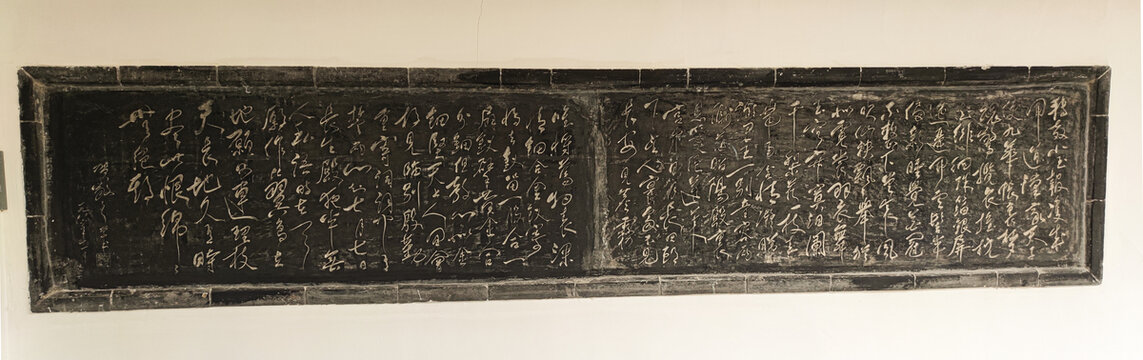 轉教小玉報雙成
聞道漢家天子
使九華帳裏夢
魂驚攬衣推枕
起徘徊珠箔銀屏
迤邐開雲鬢半
偏新睡覺花冠
不整下堂來風
吹仙袂飄飄舉猶
似霓裳羽衣舞
玉容寂寞淚闌
干梨花一枝春
帶雨含情凝睇
謝君王一別音容
兩渺茫昭陽殿裏
恩愛絕蓬萊宮
中日月長回頭
下望人寰處不見
長安見塵霧
唯將舊物表深
情鈿合金釵寄將
去釵留一股合一
扇釵擘黃金合
分鈿但教心似金
鈿堅天上人間會
相見臨別殷勤
重寄詞詞中有
誓兩心知七月七日
長生殿夜半無
人私語時在天
願作比翼鳥在
地願為連理枝
天長地久有時
盡此恨綿々
無絕期